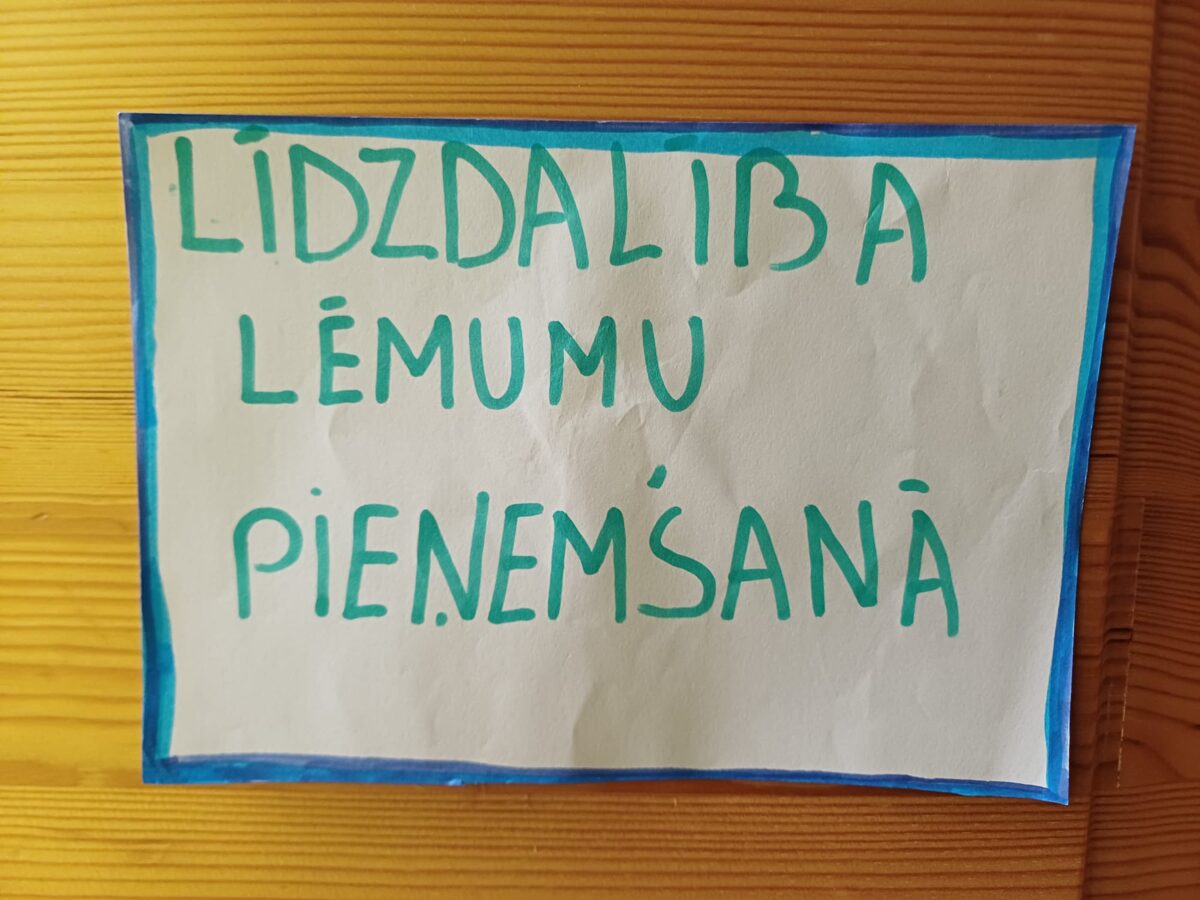 LĪDZDALĪBA
LĒMUMU
PIEŅEMŠANĀ